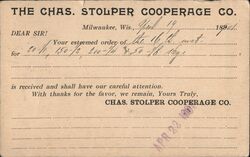 THE CHAS. STOLPER COOPERAGE CO.
Milwaukee, Wis., April 19 189
DEAR SIR!
Your esteemed order of the 16th inst
for
is received and shall have our careful attention.
With thanks for the favor, we remain, Yours Truly,
CHAS. STOLPER COOPERAGE CO.
APR 23